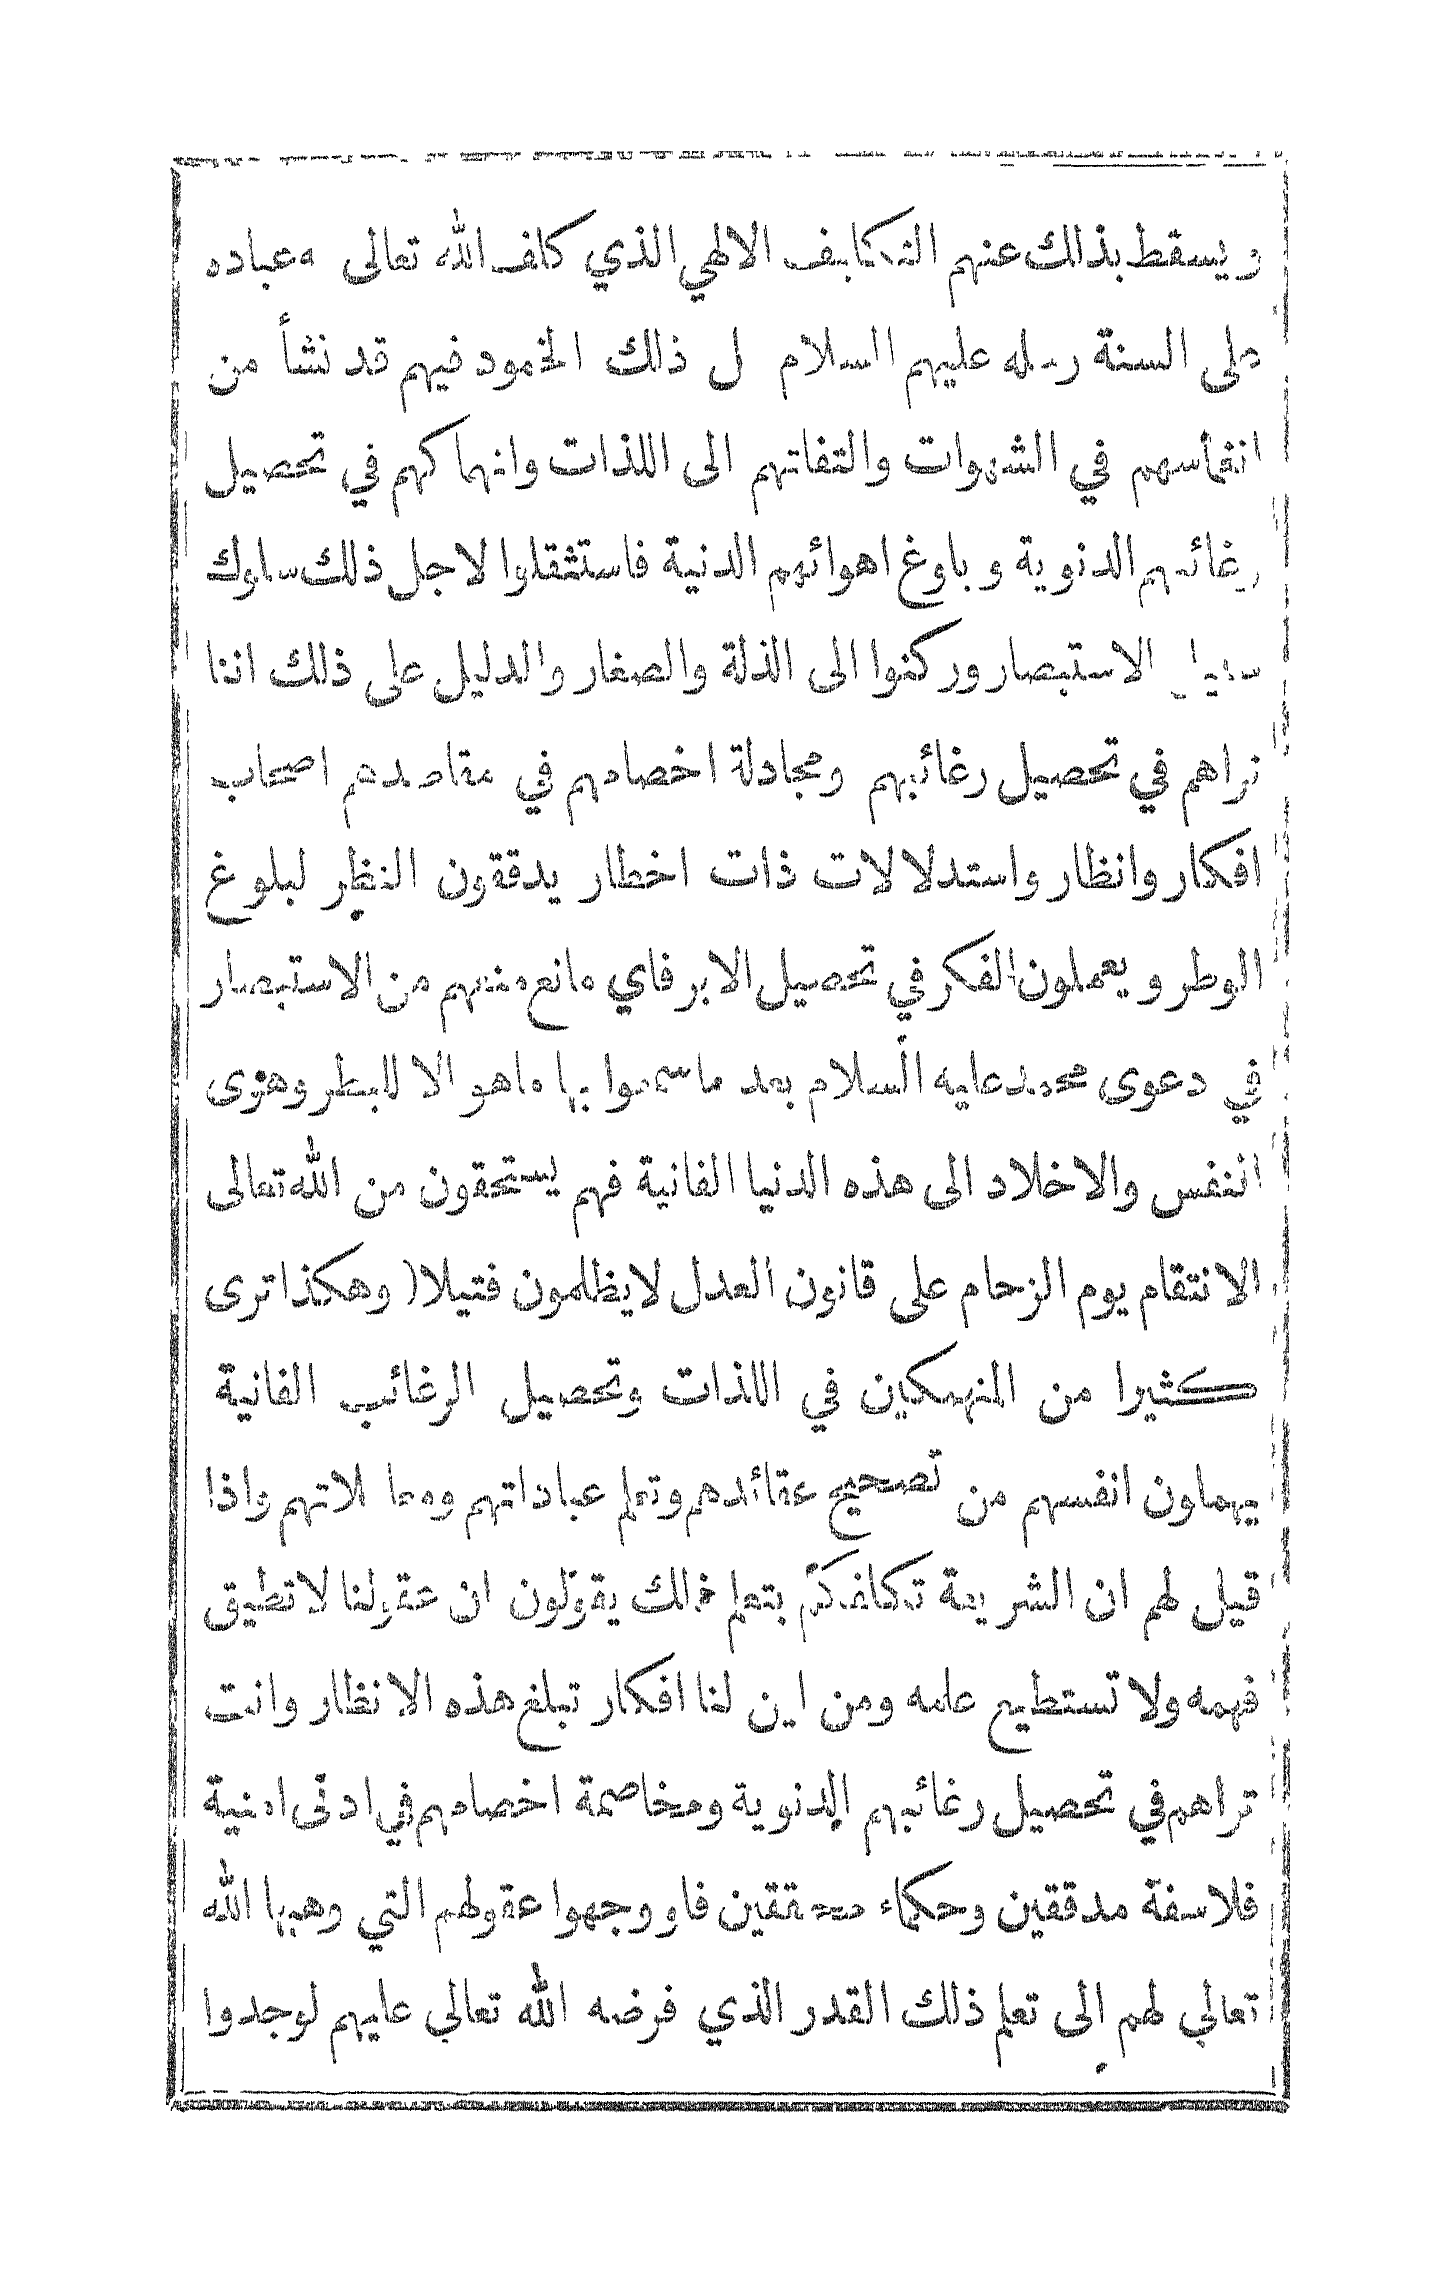 ويسقط بذلك عنهم التكليف الالهي الذي كلف الله تعالى به عباده
على السنة رسله عليهم السلام بل ذلك الخمود فيهم قد نشأ من
انغماسهم في الشهوات والتفاتهم الى اللذات وانهماكهم في تحصيل
رغائبهم الدنوية وبلوغ اهوائهم الدنية فاستثقلوا لاجل ذلك سلوك
سبيل الاستبصار وركنوا الى الذلة والصغار والدليل على ذلك اننا
نراهم في تحصيل رغائبهم ومجادلة اخصامهم في مقاصدهم اصحاب
افكار وانظار واستدلالات ذات اخطار يدققون النظر لبلوغ
الوطر ويعملون الفكر في تحصيل الابر فاي مانع منعهم من الاستبصار
في دعوى محمد عليه السلام بعد ما سمعوا بها ما هو الا للبطر وهوى
النفس والاخلاد الى هذه الدنيا الفانية فهم يستحقون من الله تعالى
الانتقام يوم الزحام على قانون العدل لا يظلمون فتيلا( وهكذا ترى
كثيرا من المنهمكين في اللذات وتحصيل الرغائب الفانية
يهملون انفسهم من تصحيح عقائدهم وتعلم عباداتهم ومعاملاتهم واذا
قيل لهم ان الشريعة تكلفكم بتعلم ذلك يقولون ان عقولنا لا تطيق
فهمه ولا تستطيع علمه ومن اين لنا افكار تبلغ هذه الانظار وانت
تراهم في تحصيل رغائبهم الدنوية ومخاصمة اخصامهم في ادنى امنية
فلاسفة مدققين وحكماء محققين فلو وجهوا عقولهم التي وهبها الله
تعالى لهم الى تعلم ذلك القدر الذي فرضه الله تعالى عليهم لوجدوا